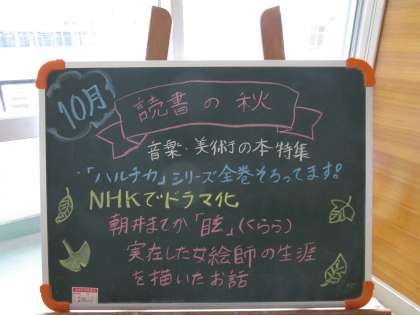 10月
読書の秋
音楽・美術の本特集
・「ハルチカ」シリーズ全巻そろってます!
NHKでドラマ化
朝井まてか「眩」(くらら)
実在した女絵師の生涯
を描いたお話